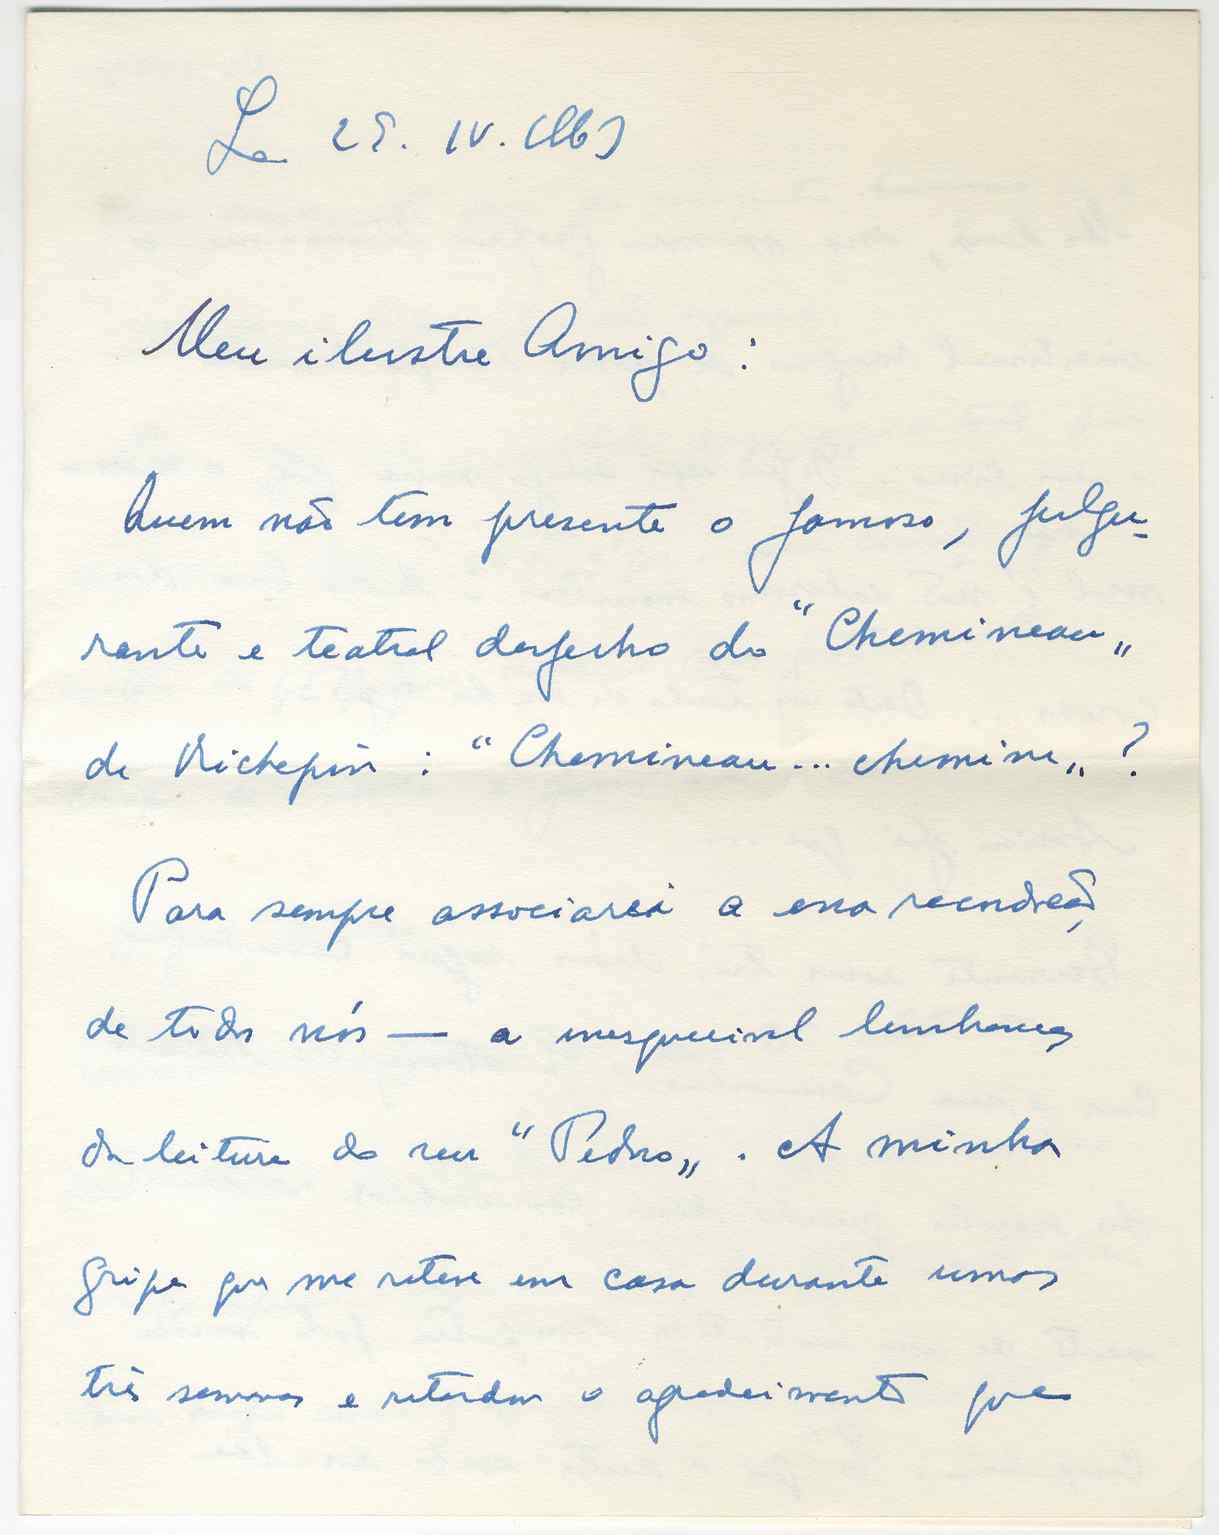 Lx 25. IV. (963)
Meu ilustre Amigo:
Quem não tem presente o famoso, fulgu-
rante e teatral desfecho do "Chemineau"
de Richepin: "Chemineau... chemine"?
Para sempre associarei a essa recordação,
de todos nós — a inesquecível lembrança
da leitura do seu "Pedro". A minha
gripe que me reteve em casa durante umas
três semanas e retardou o agradecimento que